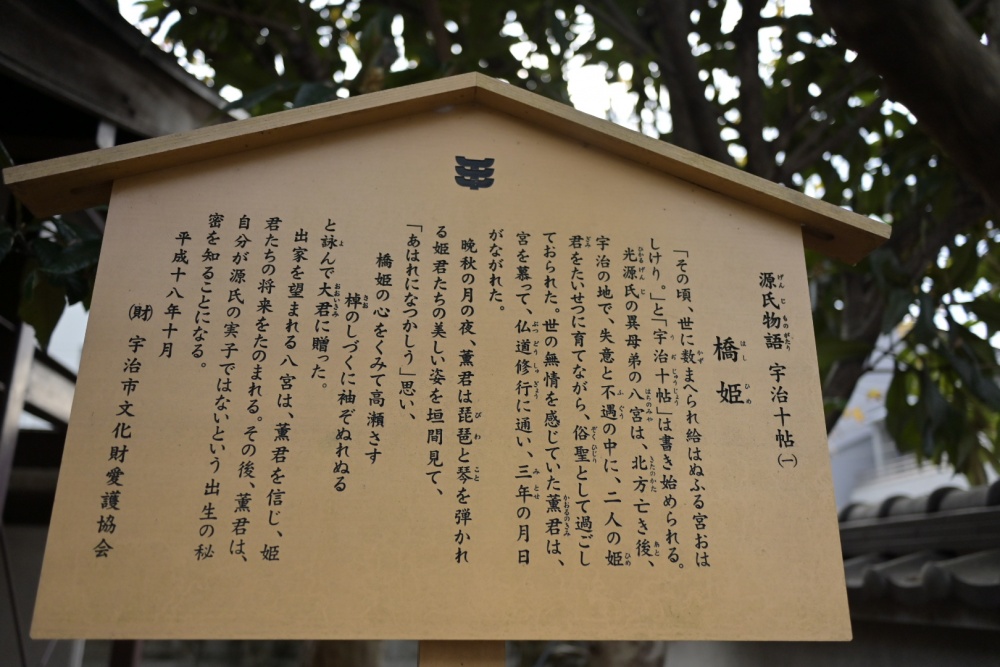 源氏物語 宇治十帖㈠
橋姫
「その頃、世に数まへられ給はぬふる宮おは
しけり。」と「宇治十帖」は書き始められる。
光源氏の異母弟の八宮は、北方亡き後、
宇治の地で、失意と不遇の中に、二人の姫
君をたいせつに育てながら、俗聖として過ごし
ておられた。世の無情を感じていた薫君は、
宮を慕って、仏道修行に通い、三年の月日
がながれた。
晩秋の月の夜、薫君は琵琶と琴を弾かれ
る姫君たちの美しい姿を垣間見て、
「あはれになつかしう」思い、
橋姫の心をくみて高瀬さす
棹のしづくに袖ぞぬれぬる
と詠んで大君に贈った。
出家を望まれる八宮は、薫君を信じ、姫
君たちの将来をたのまれる。その後、薫君は、
自分が源氏の実子ではないという出生の秘
密を知ることになる。
平成十八年十月
㈶ 宇治市文化財愛護協会